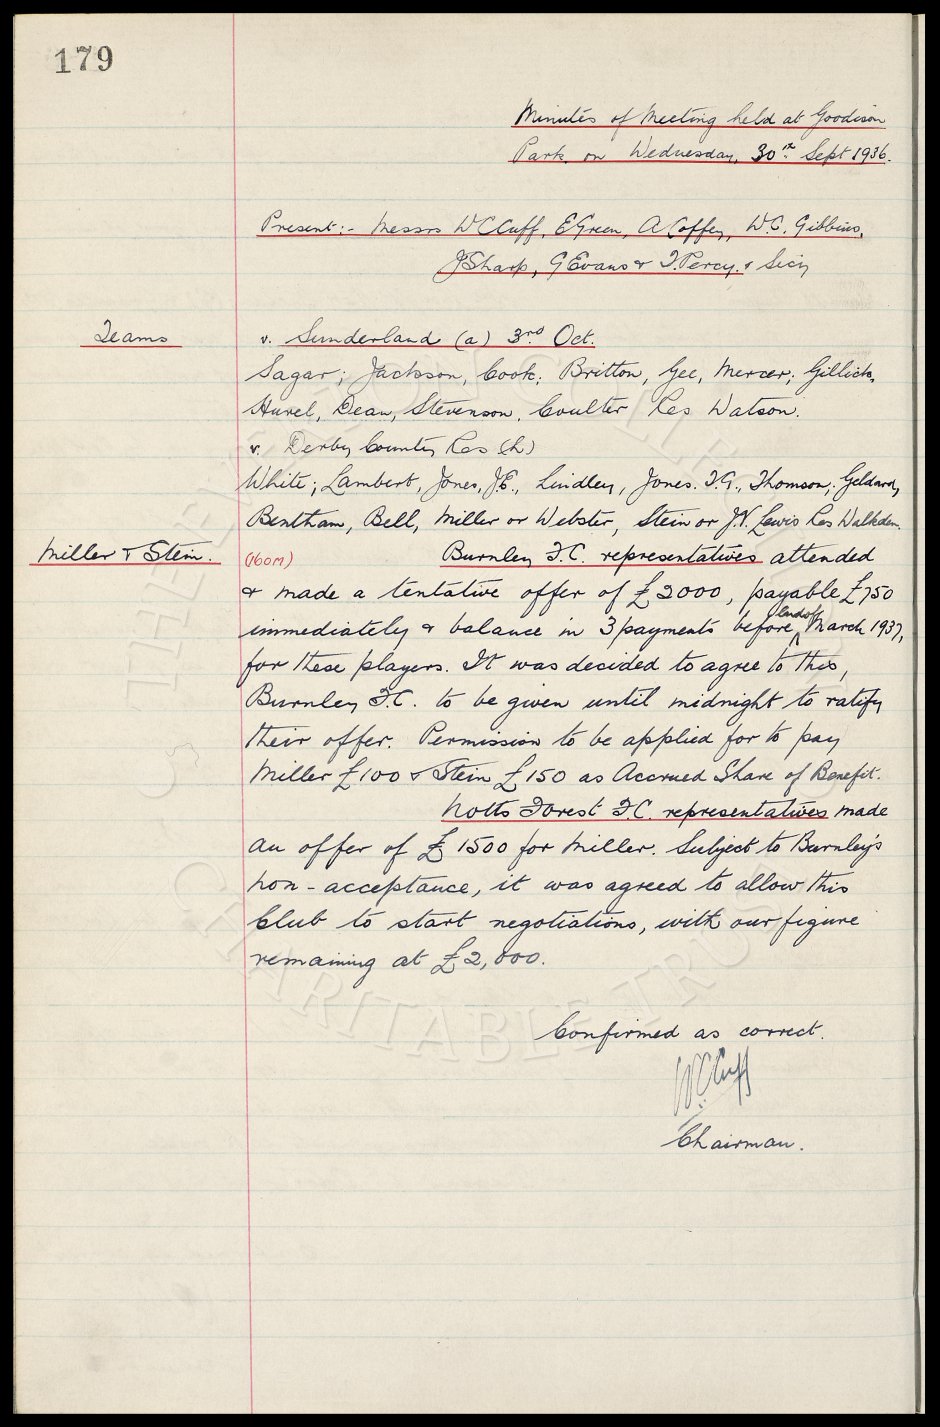 179
Minutes of Meeting held at Goodison
Park, on Wednesday, 30th Sept 1936.
Present:- Messrs W C Cuff, E Green, A Coffey, W.C. Gibbins,
J Sharp, G Evans & T. Percy. & Secy
Teams
v. Sunderland (a) 3rd Oct.
Sagar; Jackson, Cook; Britton, Gee, Mercer; Gillick,
Hurel, Dean, Stevenson, Coulter Res Watson.
v. Derby County Res (h)
White; Lambert, Jones, J.E., Lindley, Jones. T.G., Thomson; Geldard,
Bentham, Bell, Miller or Webster, Stein or J.V. Lewis Res Walkden.
Miller & Stein. (160M) Burnley F.C. representatives attended
& made a tentative offer of £2000, payable £750
immediately & balance in 3 payments before end of March 1937,
for these players. It was decided to agree to this,
Burnley F.C. to be given until midnight to ratify
their offer. Permission to be applied for to pay
Miller £100 & Stein £150 as Accrued Share of Benefit.
Notts Forest F.C. representatives made
an offer of £1500 for Miller. Subject to Burnley's
non-acceptance, it was agreed to allow this
Club to start negotiations, with our figure
remaining at £2,000.
Confirmed as correct.
W C Cuff
Chairman.
THE EVERTON COLLECTION
CHARITABLE TRUST